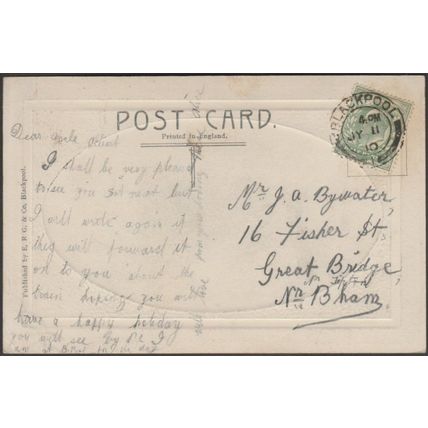 POST CARD.
Printed in England.
BLACKPOOL
4. PM
JY 11
10
Published by E. R. G. & Co. Blackpool.
Dear Uncle
I shall be very please
to see you sat next but
I will write again if
they will forward it
on to you about the
train hoping you will
have a happy holiday
you will see by P.C I
am at
with love from your loving
Mr J. A. Bywater
16 Fisher St
Great Bridge
Nr Tipton
Nr B'ham